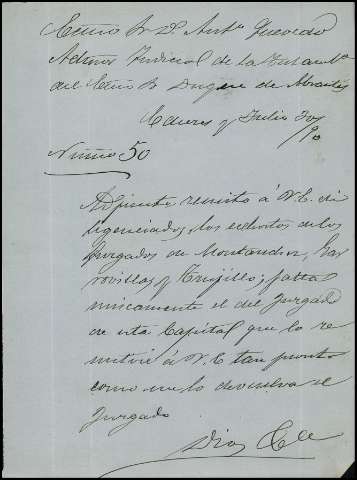 Excmo Sr D. Antº Quevedo
Admor Judicial de la Testamtª
del Excmo Sr Duque de Abrantes
Cáceres y Julio 30/90
Número 50
Adjunto remito á V.E. di
ligenciados, los exhortos de los
Juzgados de Montanchez, Gar
rovillas y Trujillo; falta
unicamente el del Juzgado
de esta Capital que lo re
mitiré á V.E. tan pronto
como me lo devuelva el
Juzgado
Dios